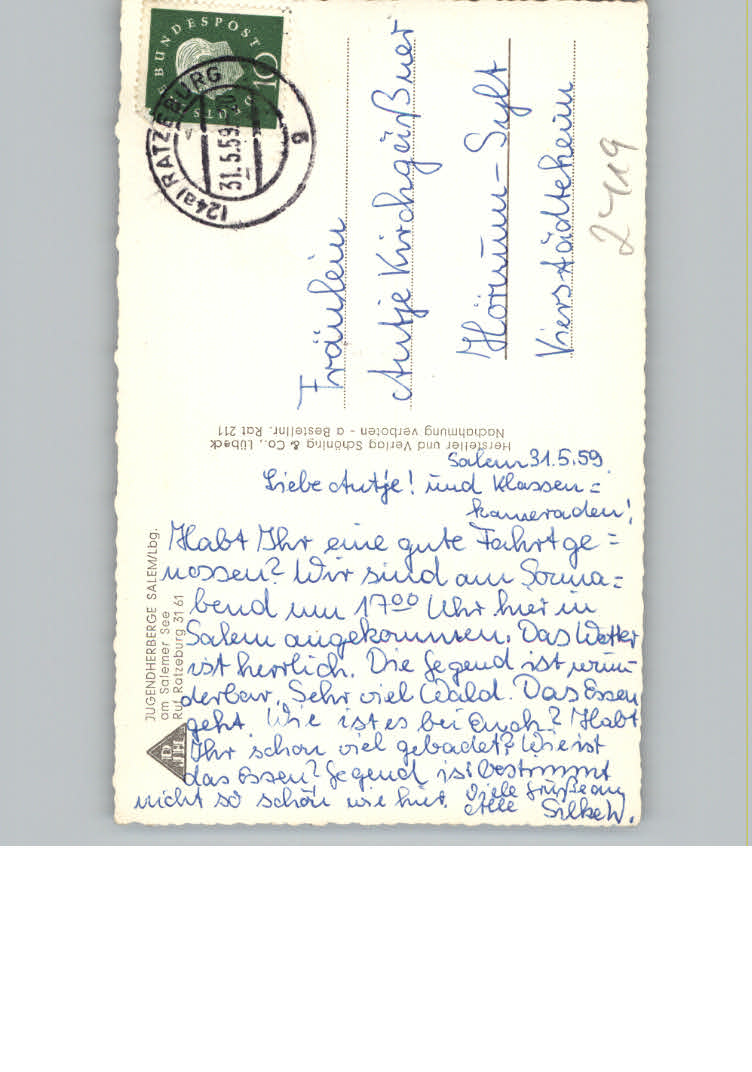 JUGENDHERBERGE SALEM/Lbg.
am Salemer See
Ruf Ratzeburg 31 61
DJH
Salem 31.5.59.
Liebe Antje! und Klassen=
kameraden!
Habt Ihr eine gute Fahrt ge=
nossen? Wir sind am Sonna=
bend um 17⁰⁰ Uhr hier in
Salem angekommen. Das Wetter
ist herrlich. Die Gegend ist wun
derbar. Sehr viel Wald. Das Essen
geht. Wie ist es bei Euch? Habt
Ihr schon viel gebadet? Wie ist
das Essen? Gegend ist bestimmt
nicht so schön wie hier. Viele Grüße an
Alle Silke W.
Hersteller und Verlag Schöning & Co., Lübeck
Nachahmung verboten - a Bestellnr. Rat 211
BUNDESPOST
10
(24a) RATZEBURG
31.5.59
g
Fräulein
Antje Kirchgeißner
Hörnum-Sylt
Vierstädteheim
2419